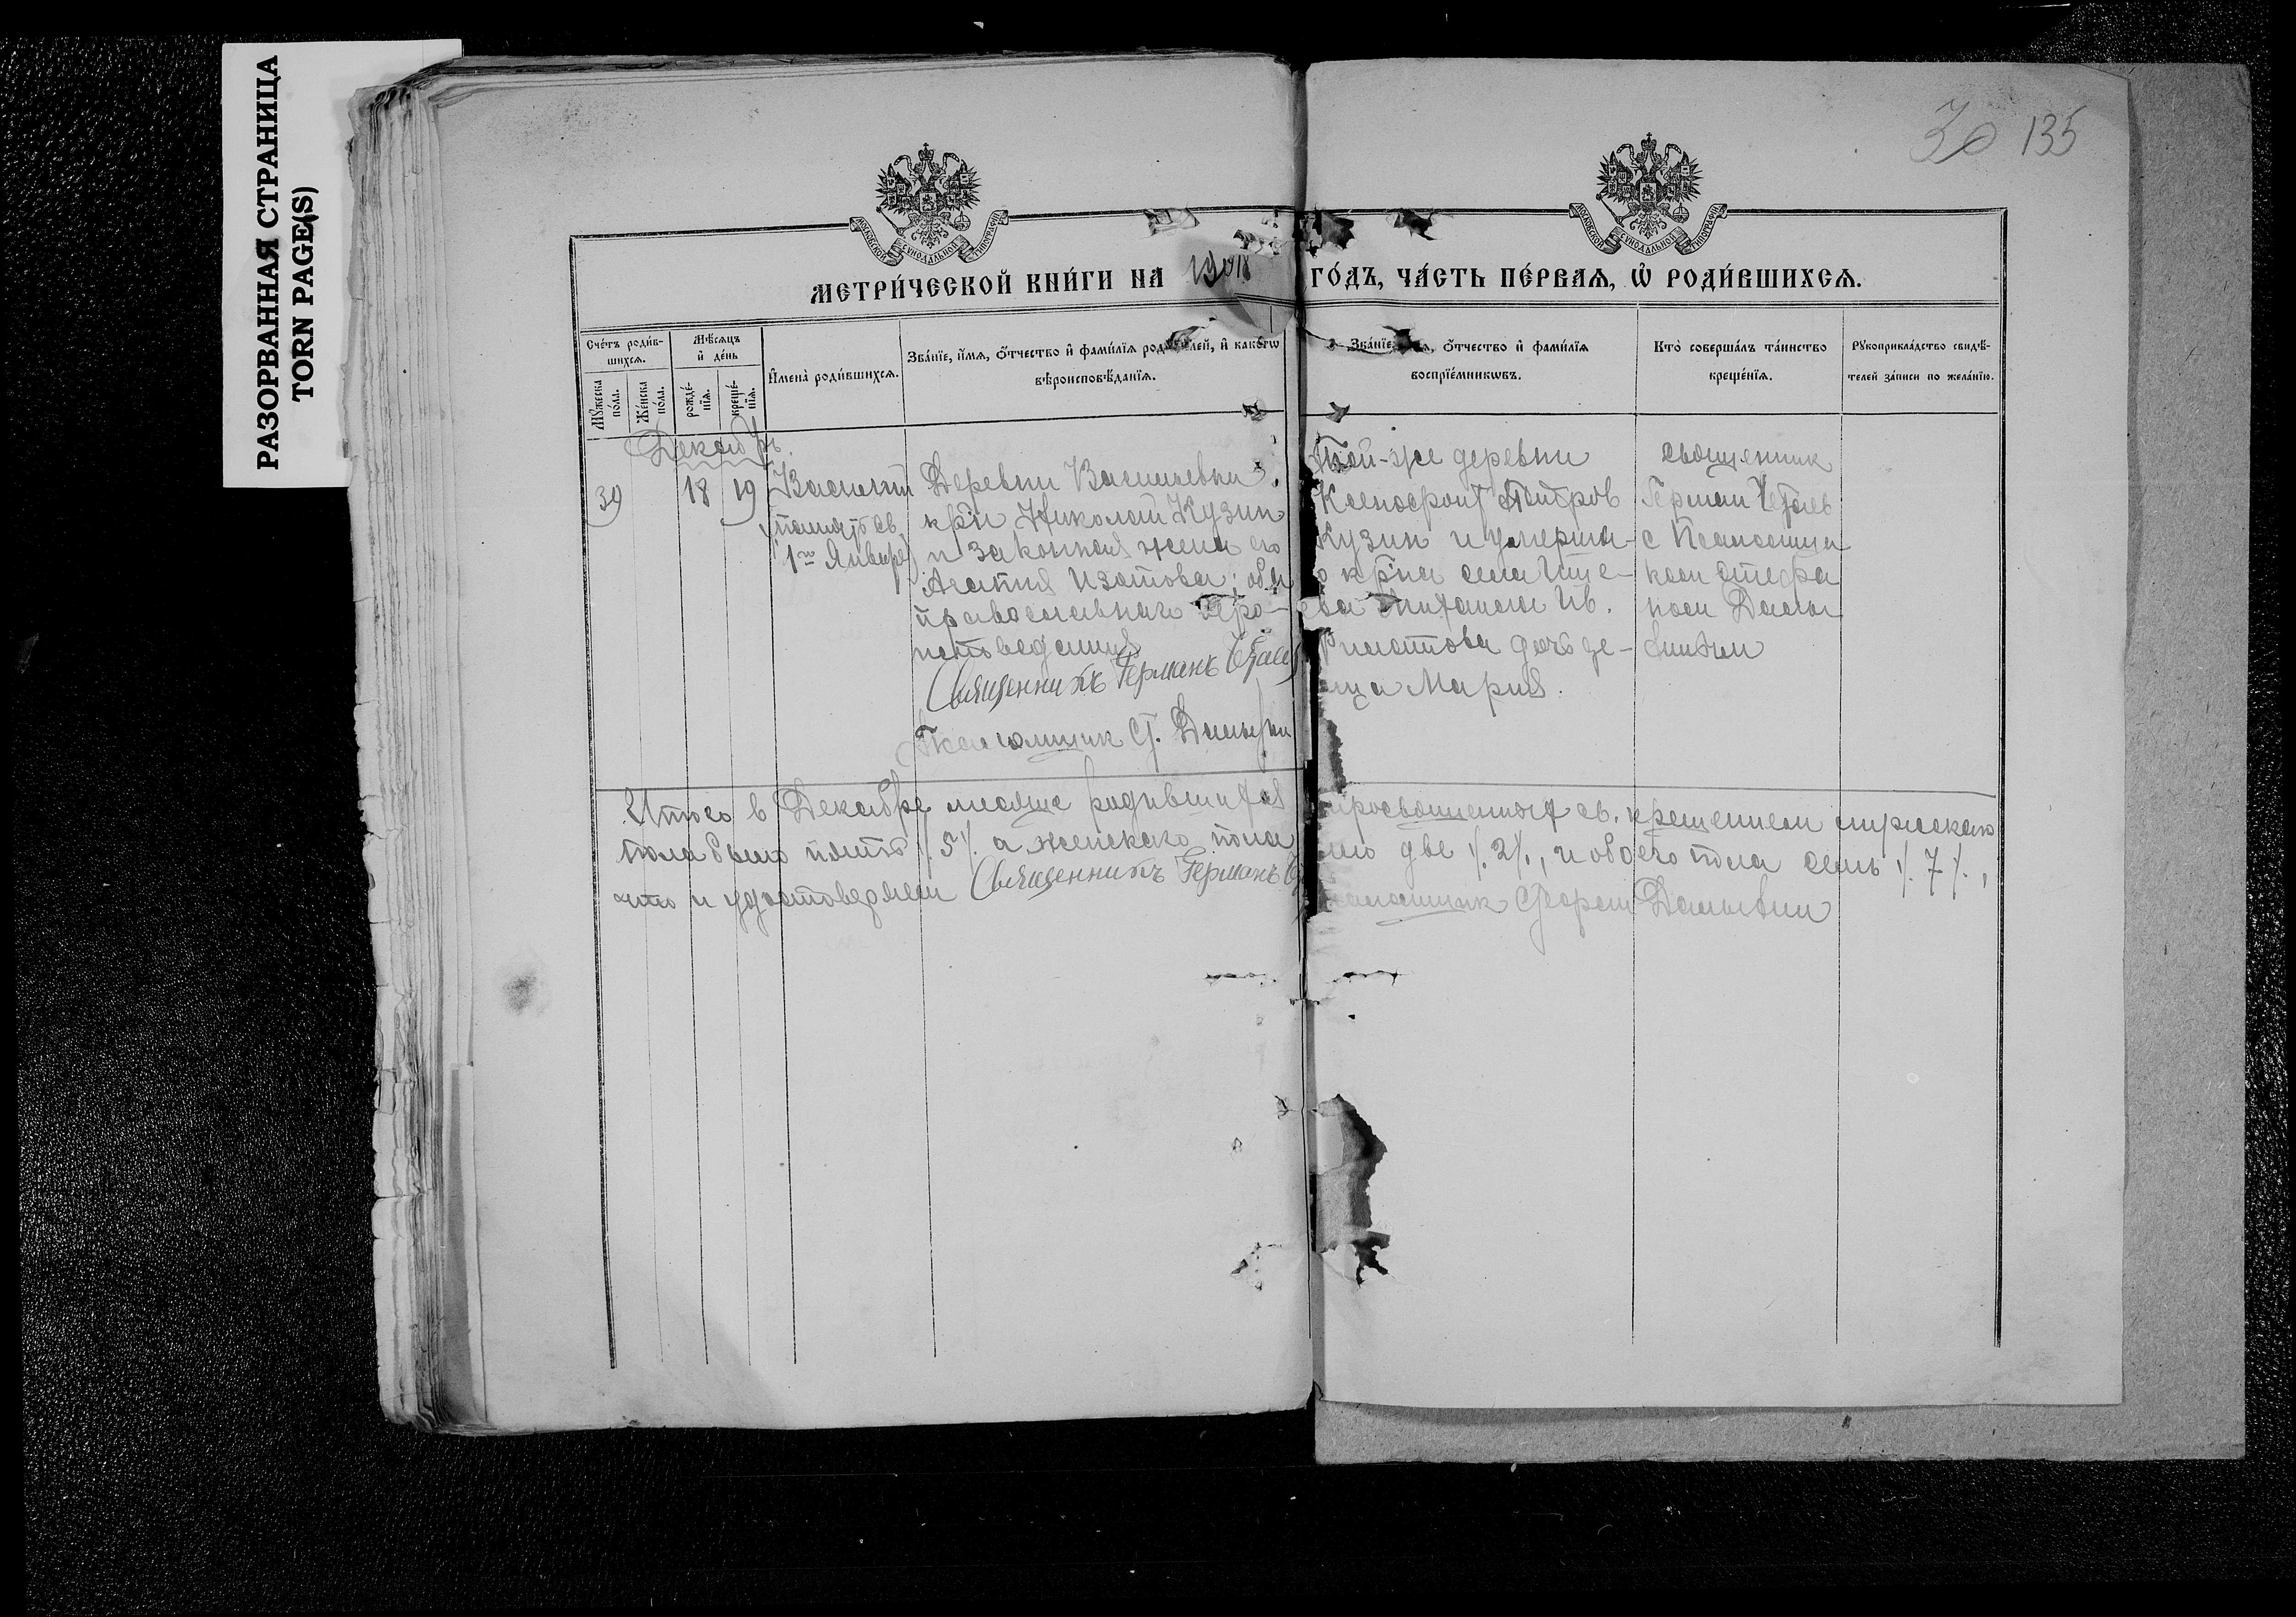 РАЗОРВАННАЯ СТРАНИЦА
TORN PAGE(S)
30 135
МОСКОВСКОЙ СѴНОДАЛЬНОЙ ТИПОГРАФІИ
МОСКОВСКОЙ СѴНОДАЛЬНОЙ ТИПОГРАФІИ
МЕТРИ́ЧЕСКОЙ КНИ́ГИ НА 1918 ГО́ДЪ, ЧА́СТЬ ПЕ́РВАЯ, Ѡ҆ РОДИ́ВШИХСЯ.
Сче́тъ роди́в-
шихся.
Мꙋ́жеска по́ла.
Же́нска по́ла.
Мѣ́сяцъ
и҆ де́нь
рожде́-
нїя.
креще́-
нїя.
И҆мена̀ роди́вшихся.
Зва́нїе, и҆́мя, ѻ҆́тчество и҆ фами́лїя роди́телей, и҆ како́гѡ
вѣроисповѣ́данїя.
Зва́нїе, и҆́мя, ѻ҆́тчество и҆ фами́лїя
воспрїе́мникѡвъ.
Кто̀ соверша́лъ та́инство
креще́нїя.
Рꙋкоприкла́дство свидѣ́-
телей за́писи по жела́нїю.
Декабрь.
39 18 19 Василий
(память св.
1го Января)
Деревни Васильевки
кр-н Николай Кузин
и законная жена его
Агапия Изотова; оба
православнаго веро-
исповедания
Священникъ Германъ
Псаломщик Ст.
Той-же деревни
Ксенофонт Петров
Кузин и умерша-
го кр-на села
Ив.
дочь де-
вица Мария.
священник
Герман
с Псаломщи
ком Стефа
ном
Итого в Декабре месяце родившихся и просвещенных св. крещением мужескаго
пола было пять ./.5./. а женскаго пола было две ./.2./., и обоего пола семь ./.7./.,
что и удостоверяем Священникъ Германъ
Псаломщик Стефан